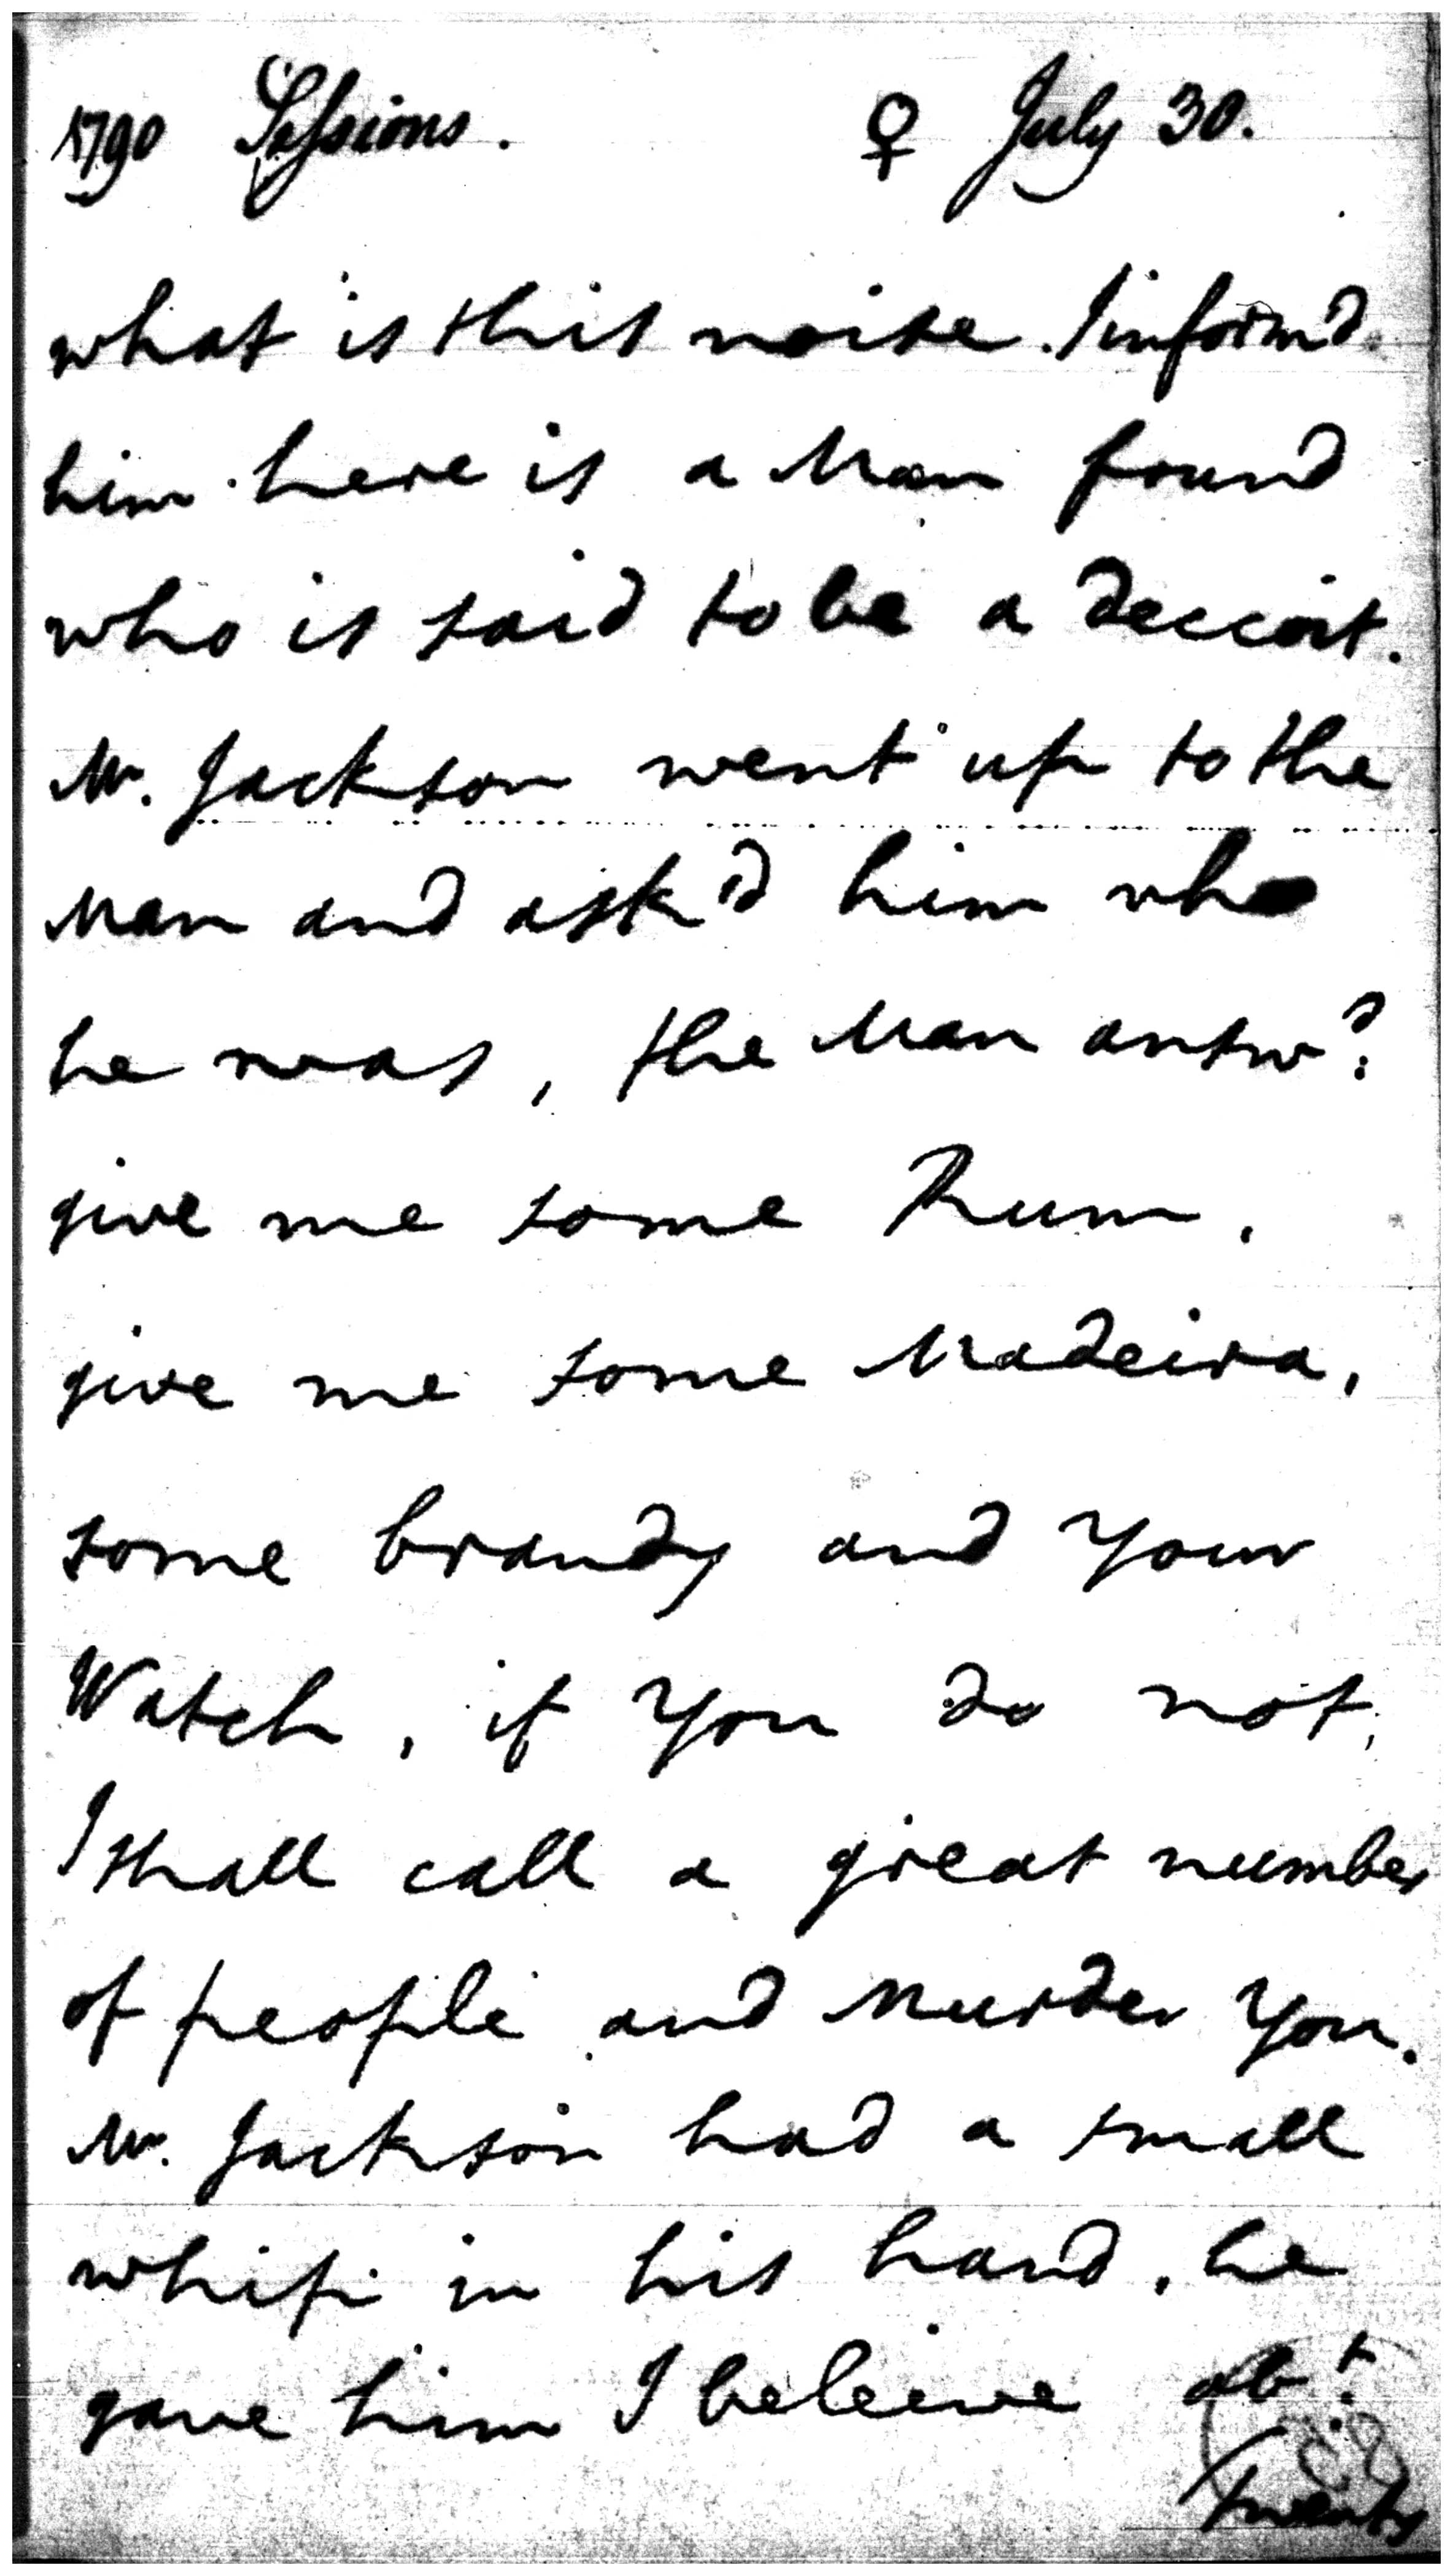 1790 Sessions. ♀ July 30.
what is this noise. I inform'd
him here is a Man found
who is said to be a deccoit.
Mr. Jackson went up to the
Man and ask'd him who
he was, the Man answd.
give me some Rum,
give me some Madeira,
some brandy and Your
Watch, if You do not,
I shall call a great number
of people and Murder You.
Mr. Jackson had a small
whip in his hand, he
gave him I beleeve abt.
Twenty